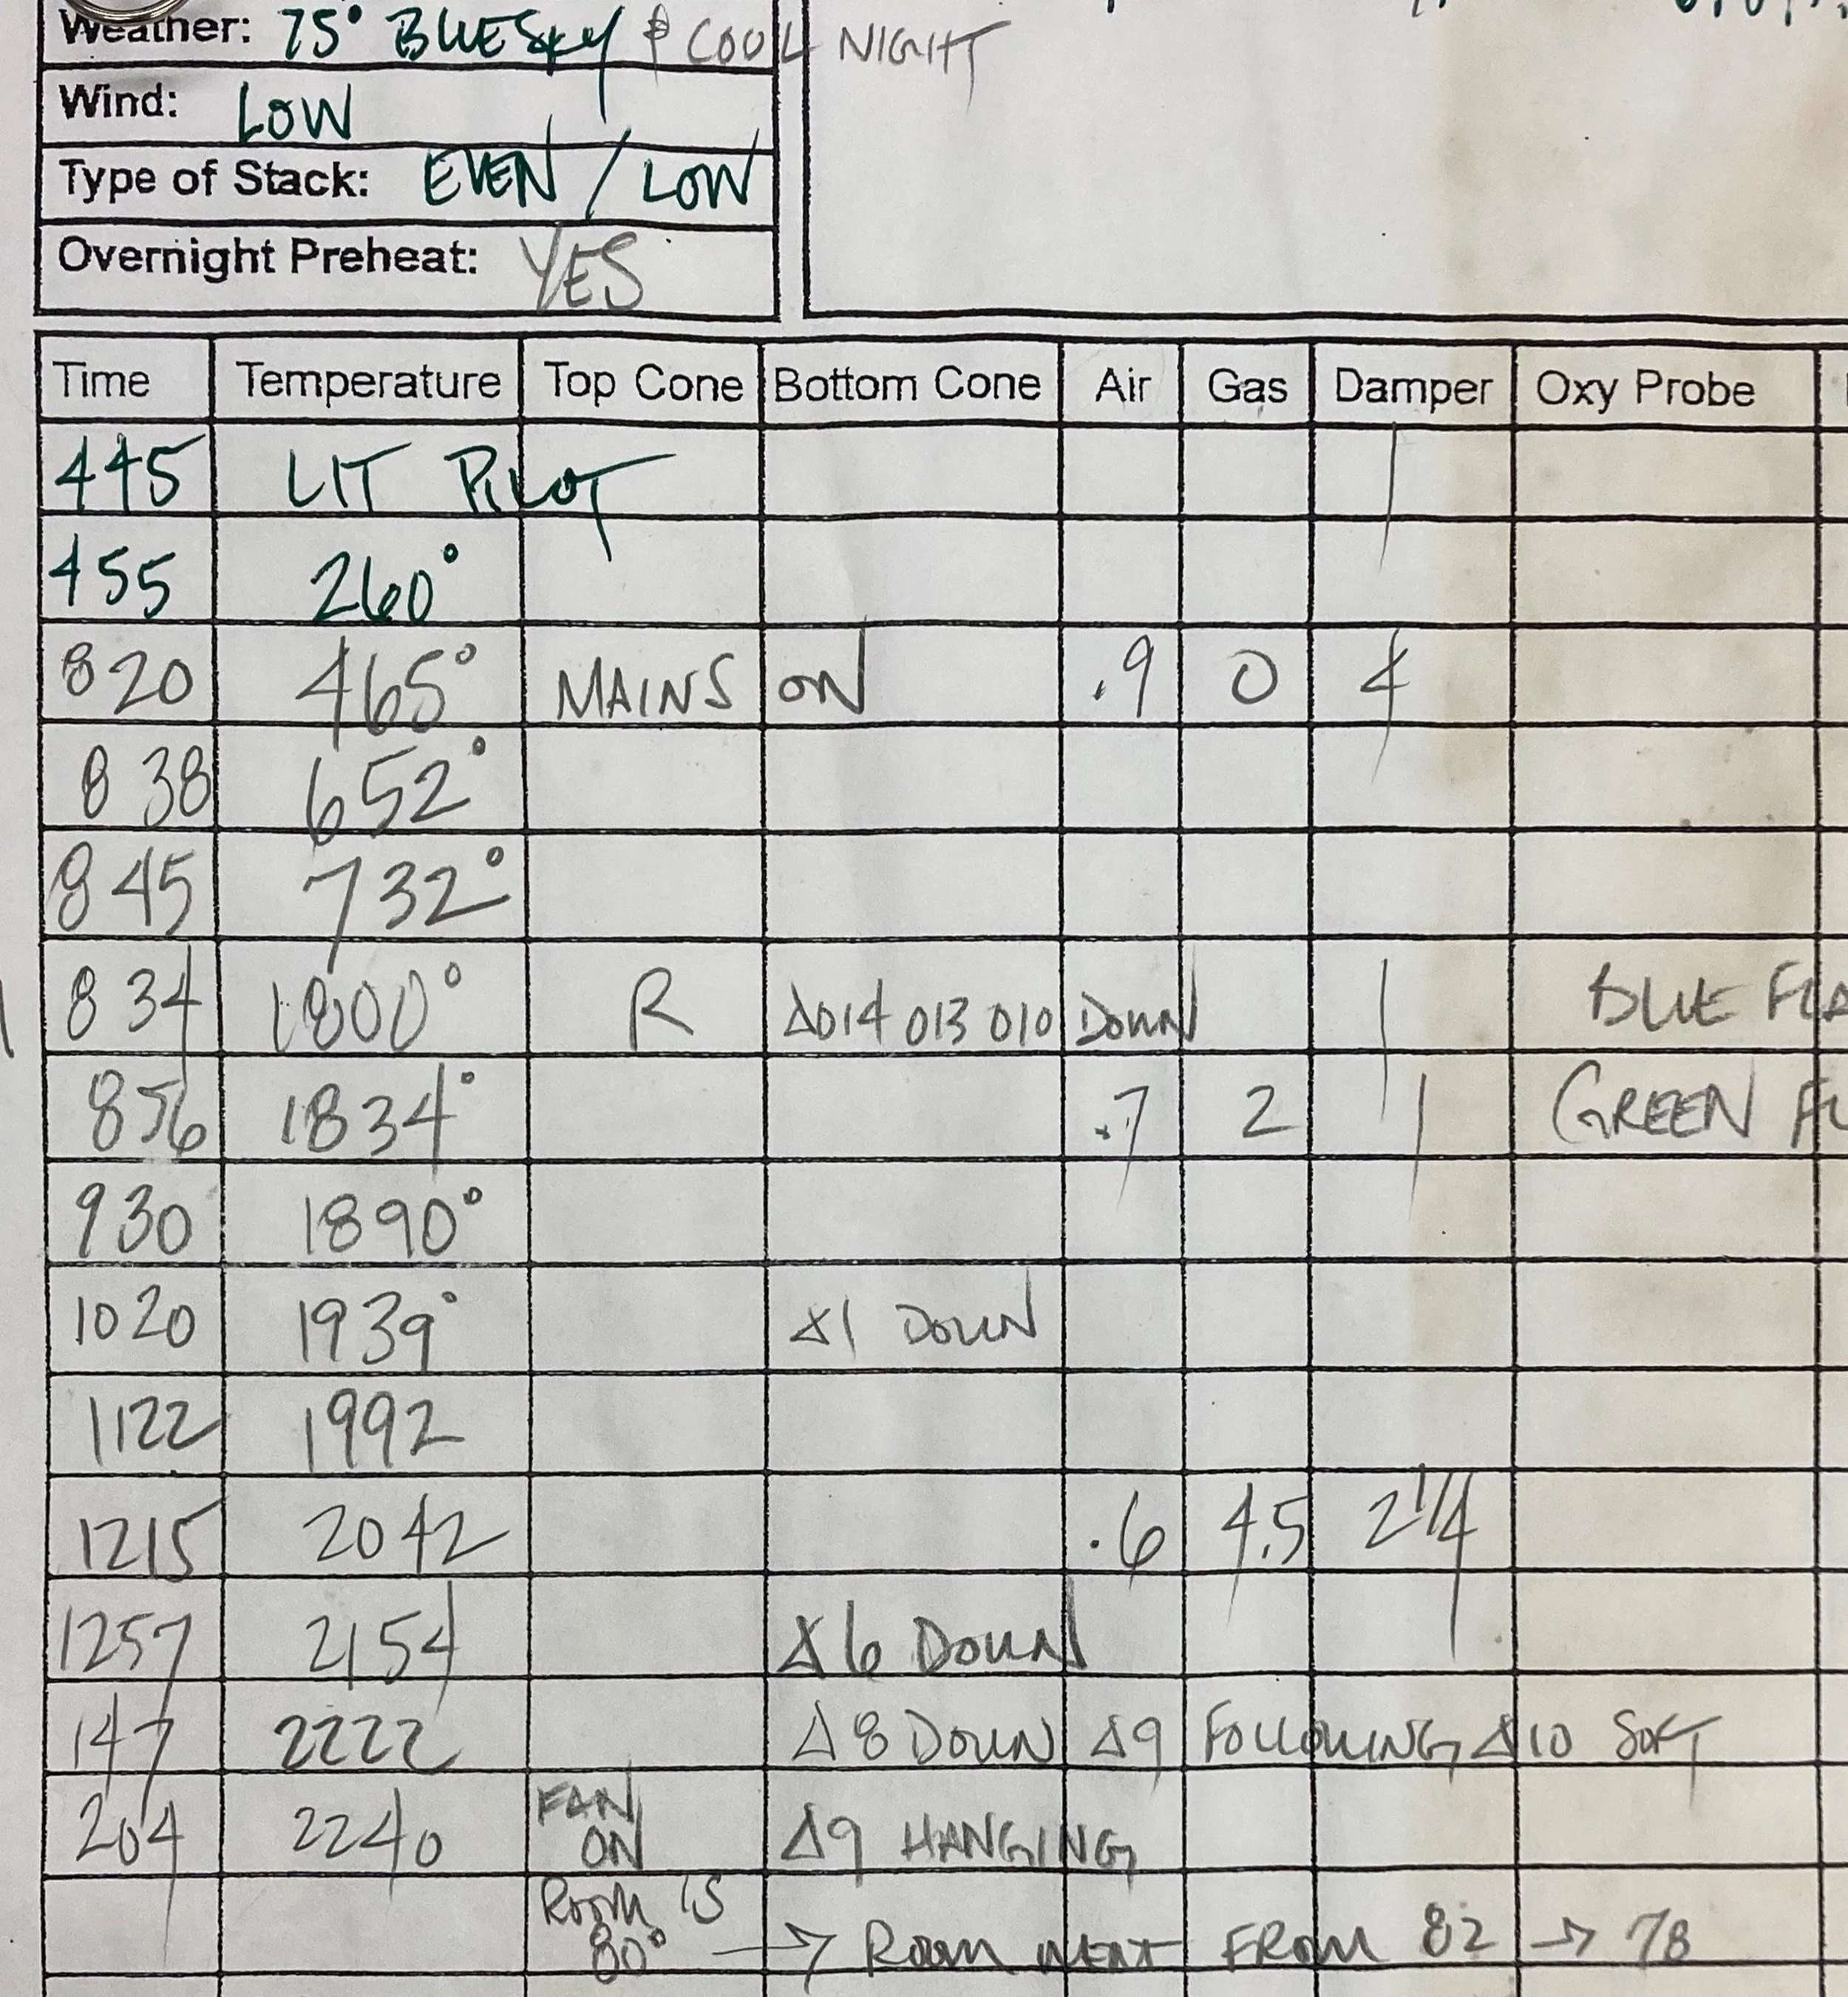 Weather: 75° BLUE SKY & COOL NIGHT
Wind: LOW
Type of Stack: EVEN / LOW
Overnight Preheat: YES
Time Temperature Top Cone Bottom Cone Air Gas Damper Oxy Probe
445 LIT PILOT
455 260°
820 465° MAINS ON .9 0 4
838 652°
845 732°
834 1800° R Δ014 013 010 DOWN BLUE
856 1834° .7 2 1 GREEN
930 1890°
1020 1939° Δ1 DOWN
1122 1992
1215 2042 .6 4.5 2 1/4
1257 2154 Δ6 DOWN
147 2222 Δ8 DOWN Δ9 FOLLOWING Δ10 SOFT
204 2240 FAN ON Δ9 HANGING
ROOM IS 80° → ROOM WENT FROM 82 → 78